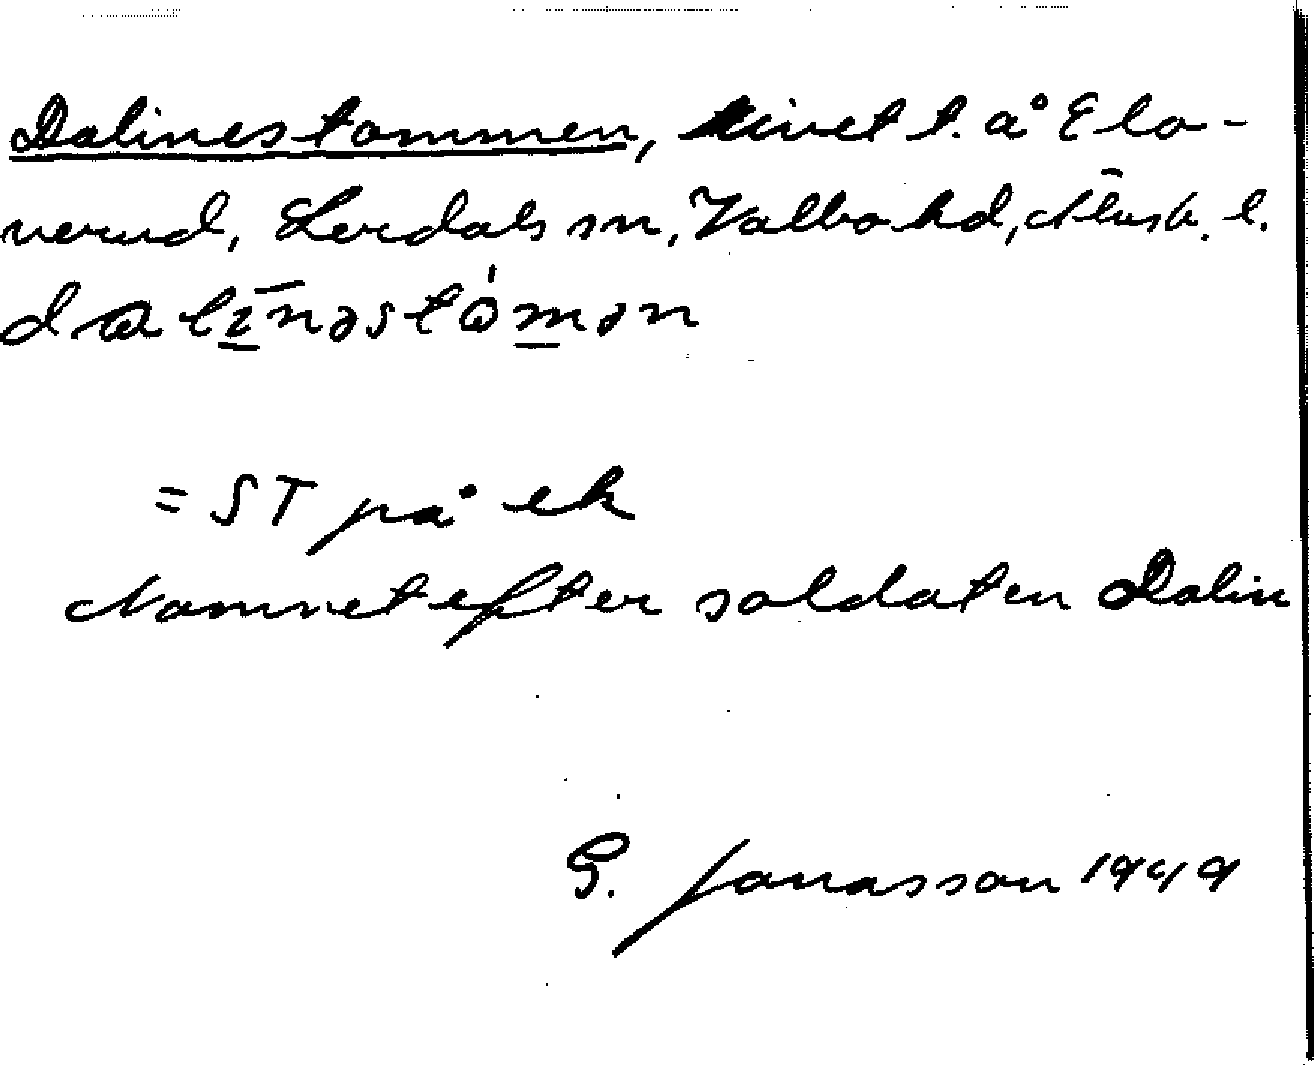 Dalinestommen, rivet t. å Elo-
nerud, Lerdals sn, Valbo hd, Älvsb. l.
dalīnəstòmən
= ST på ek
Namnet efter soldaten Dalin
G. Jonasson 1949